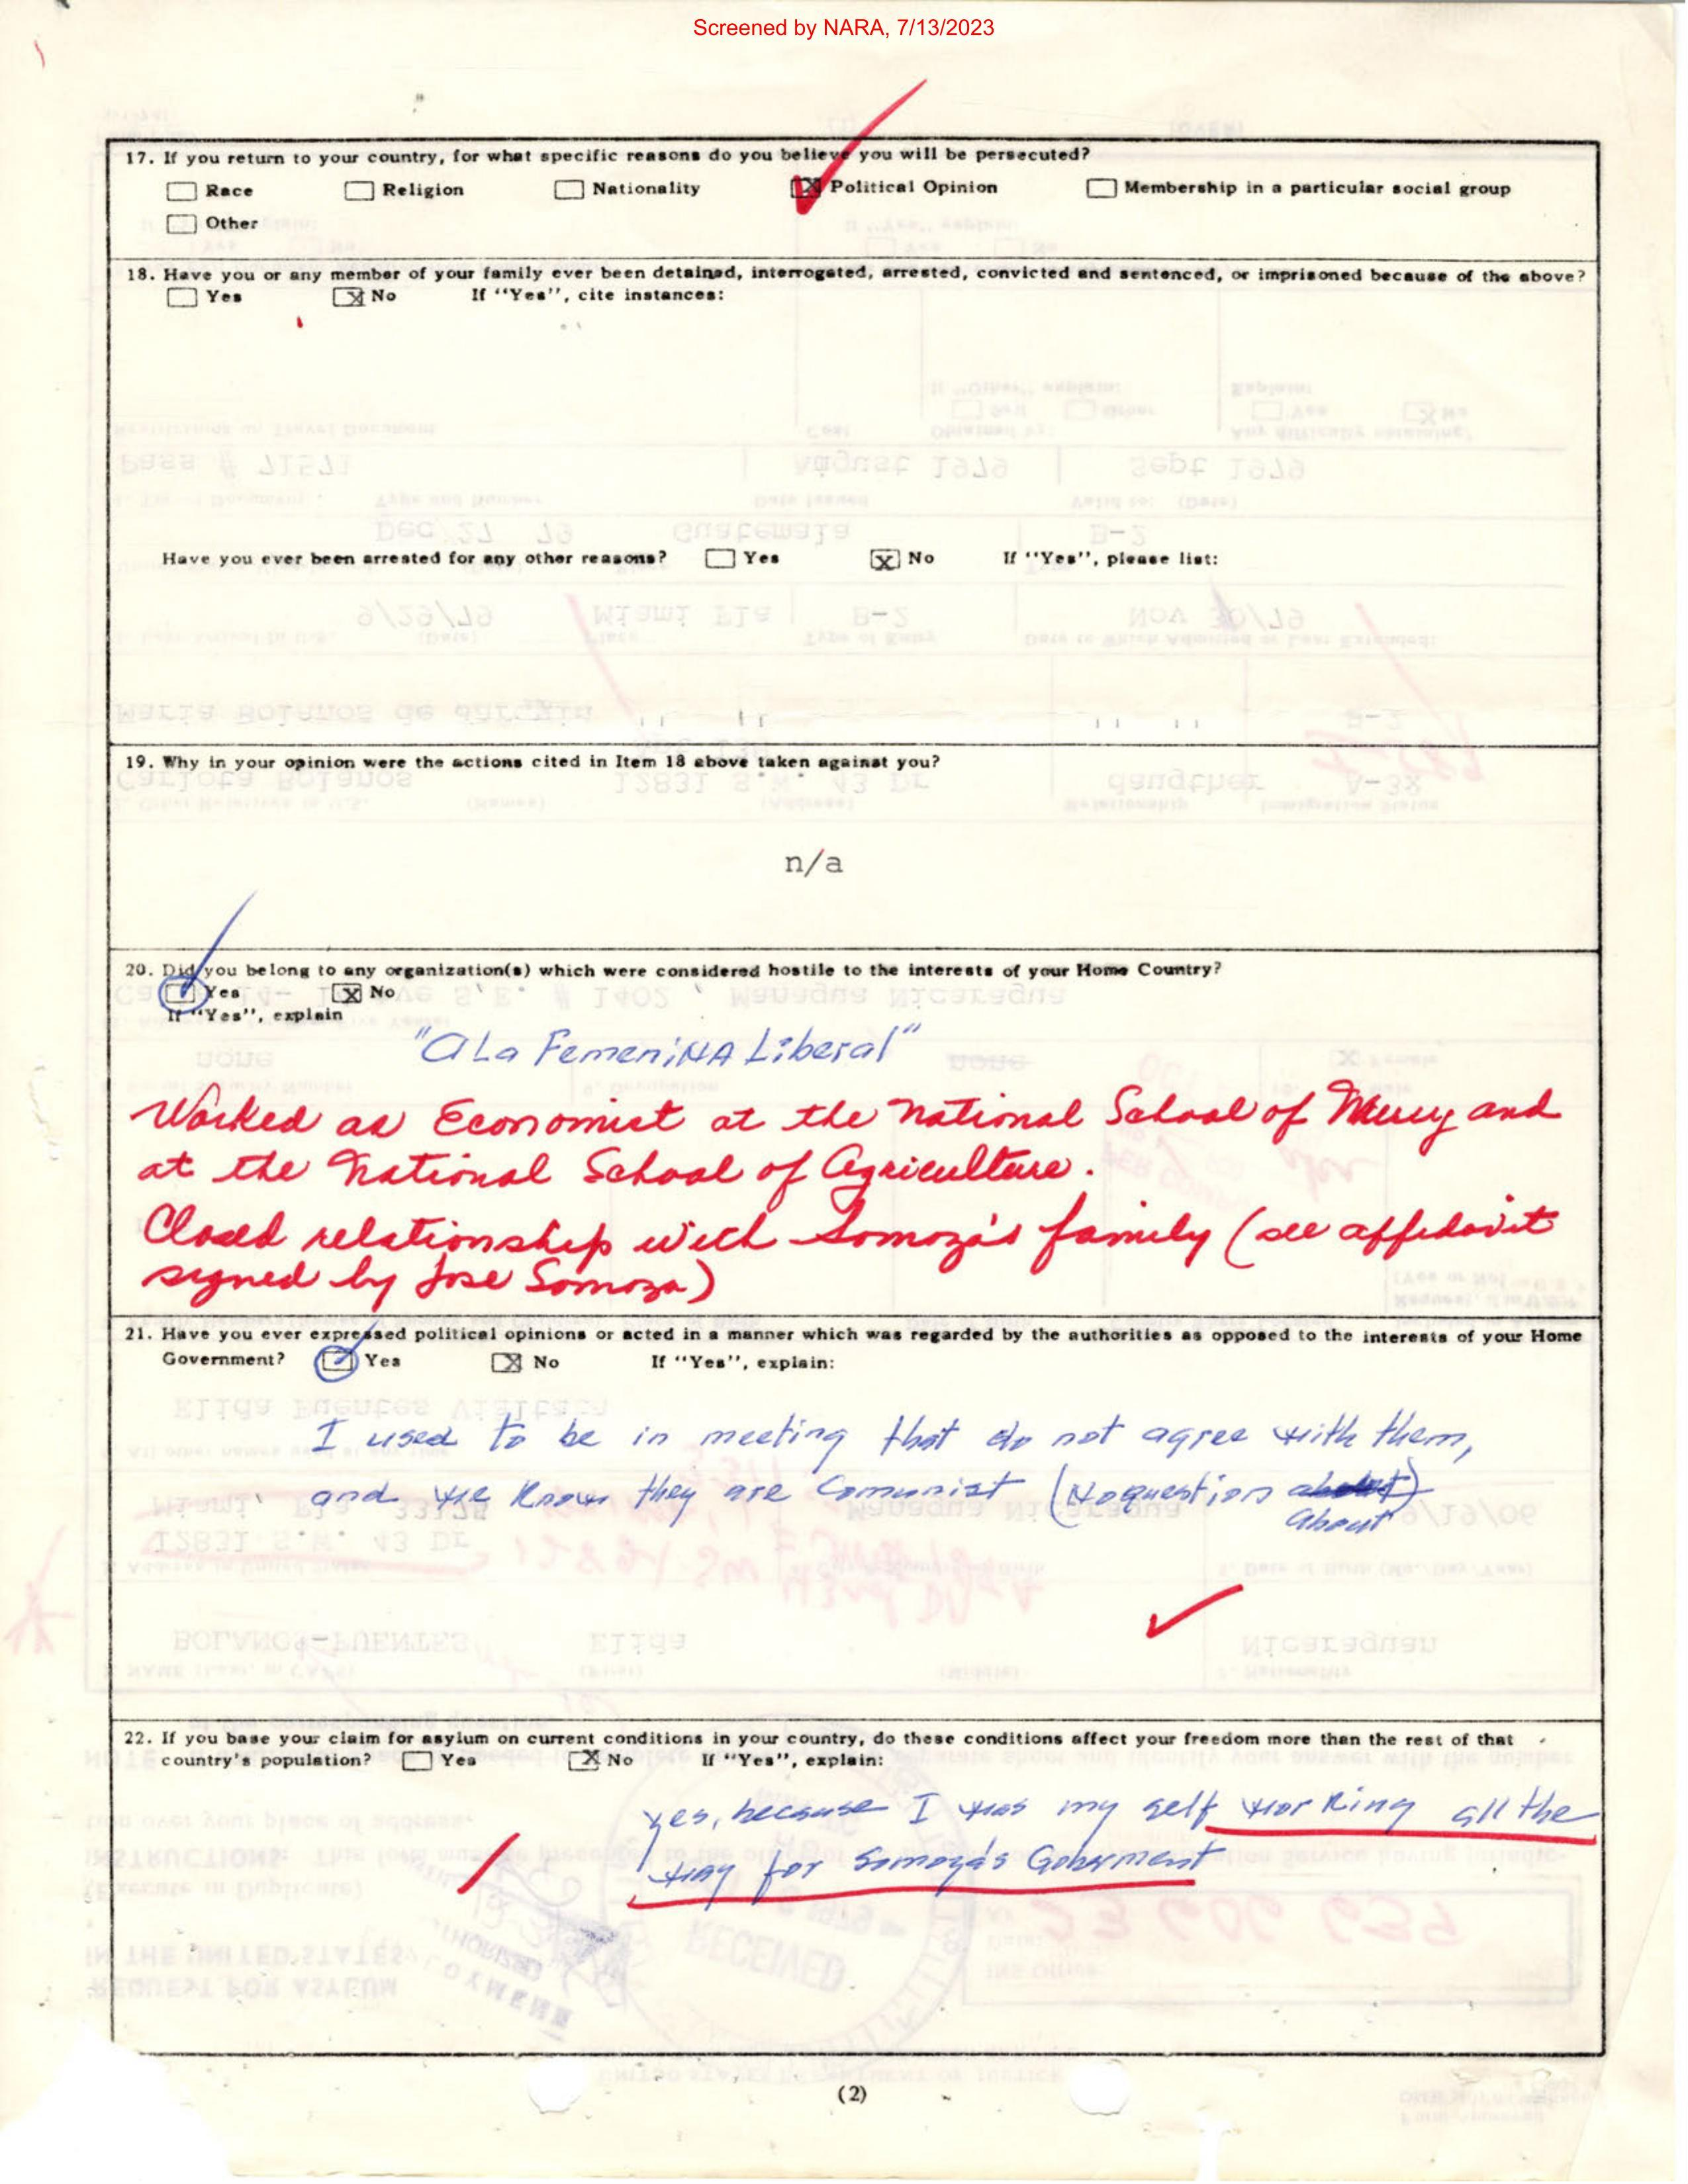 Screened by NARA, 7/13/2023
17. If you return to your country, for what specific reasons do you believe you will be persecuted?
Race Religion Nationality X Political Opinion Membership in a particular social group
Other
18. Have you or any member of your family ever been detained, interrogated, arrested, convicted and sentenced, or imprisoned because of the above?
Yes X No If "Yes", cite instances:
Have you ever been arrested for any other reasons? Yes X No If "Yes", please list:
19. Why in your opinion were the actions cited in Item 18 above taken against you?
n/a
20. Did you belong to any organization(s) which were considered hostile to the interests of your Home Country?
Yes X No
If "Yes", explain
"Ala Femenina Liberal"
Worked as Economist at the National School of and
at the National School of Agriculture.
Closed relationship wich Somoza's family (see affidavit
signed by Jose Somoza)
21. Have you ever expressed political opinions or acted in a manner which was regarded by the authorities as opposed to the interests of your Home
Government? Yes X No If "Yes", explain:
I used to be in meeting that do not agree with them,
and we know they are Comunist (No question about)
About
22. If you base your claim for asylum on current conditions in your country, do these conditions affect your freedom more than the rest of that
country's population? Yes X No If "Yes", explain:
yes, because I was my self working all the
way for Somoza's Goberment
(2)